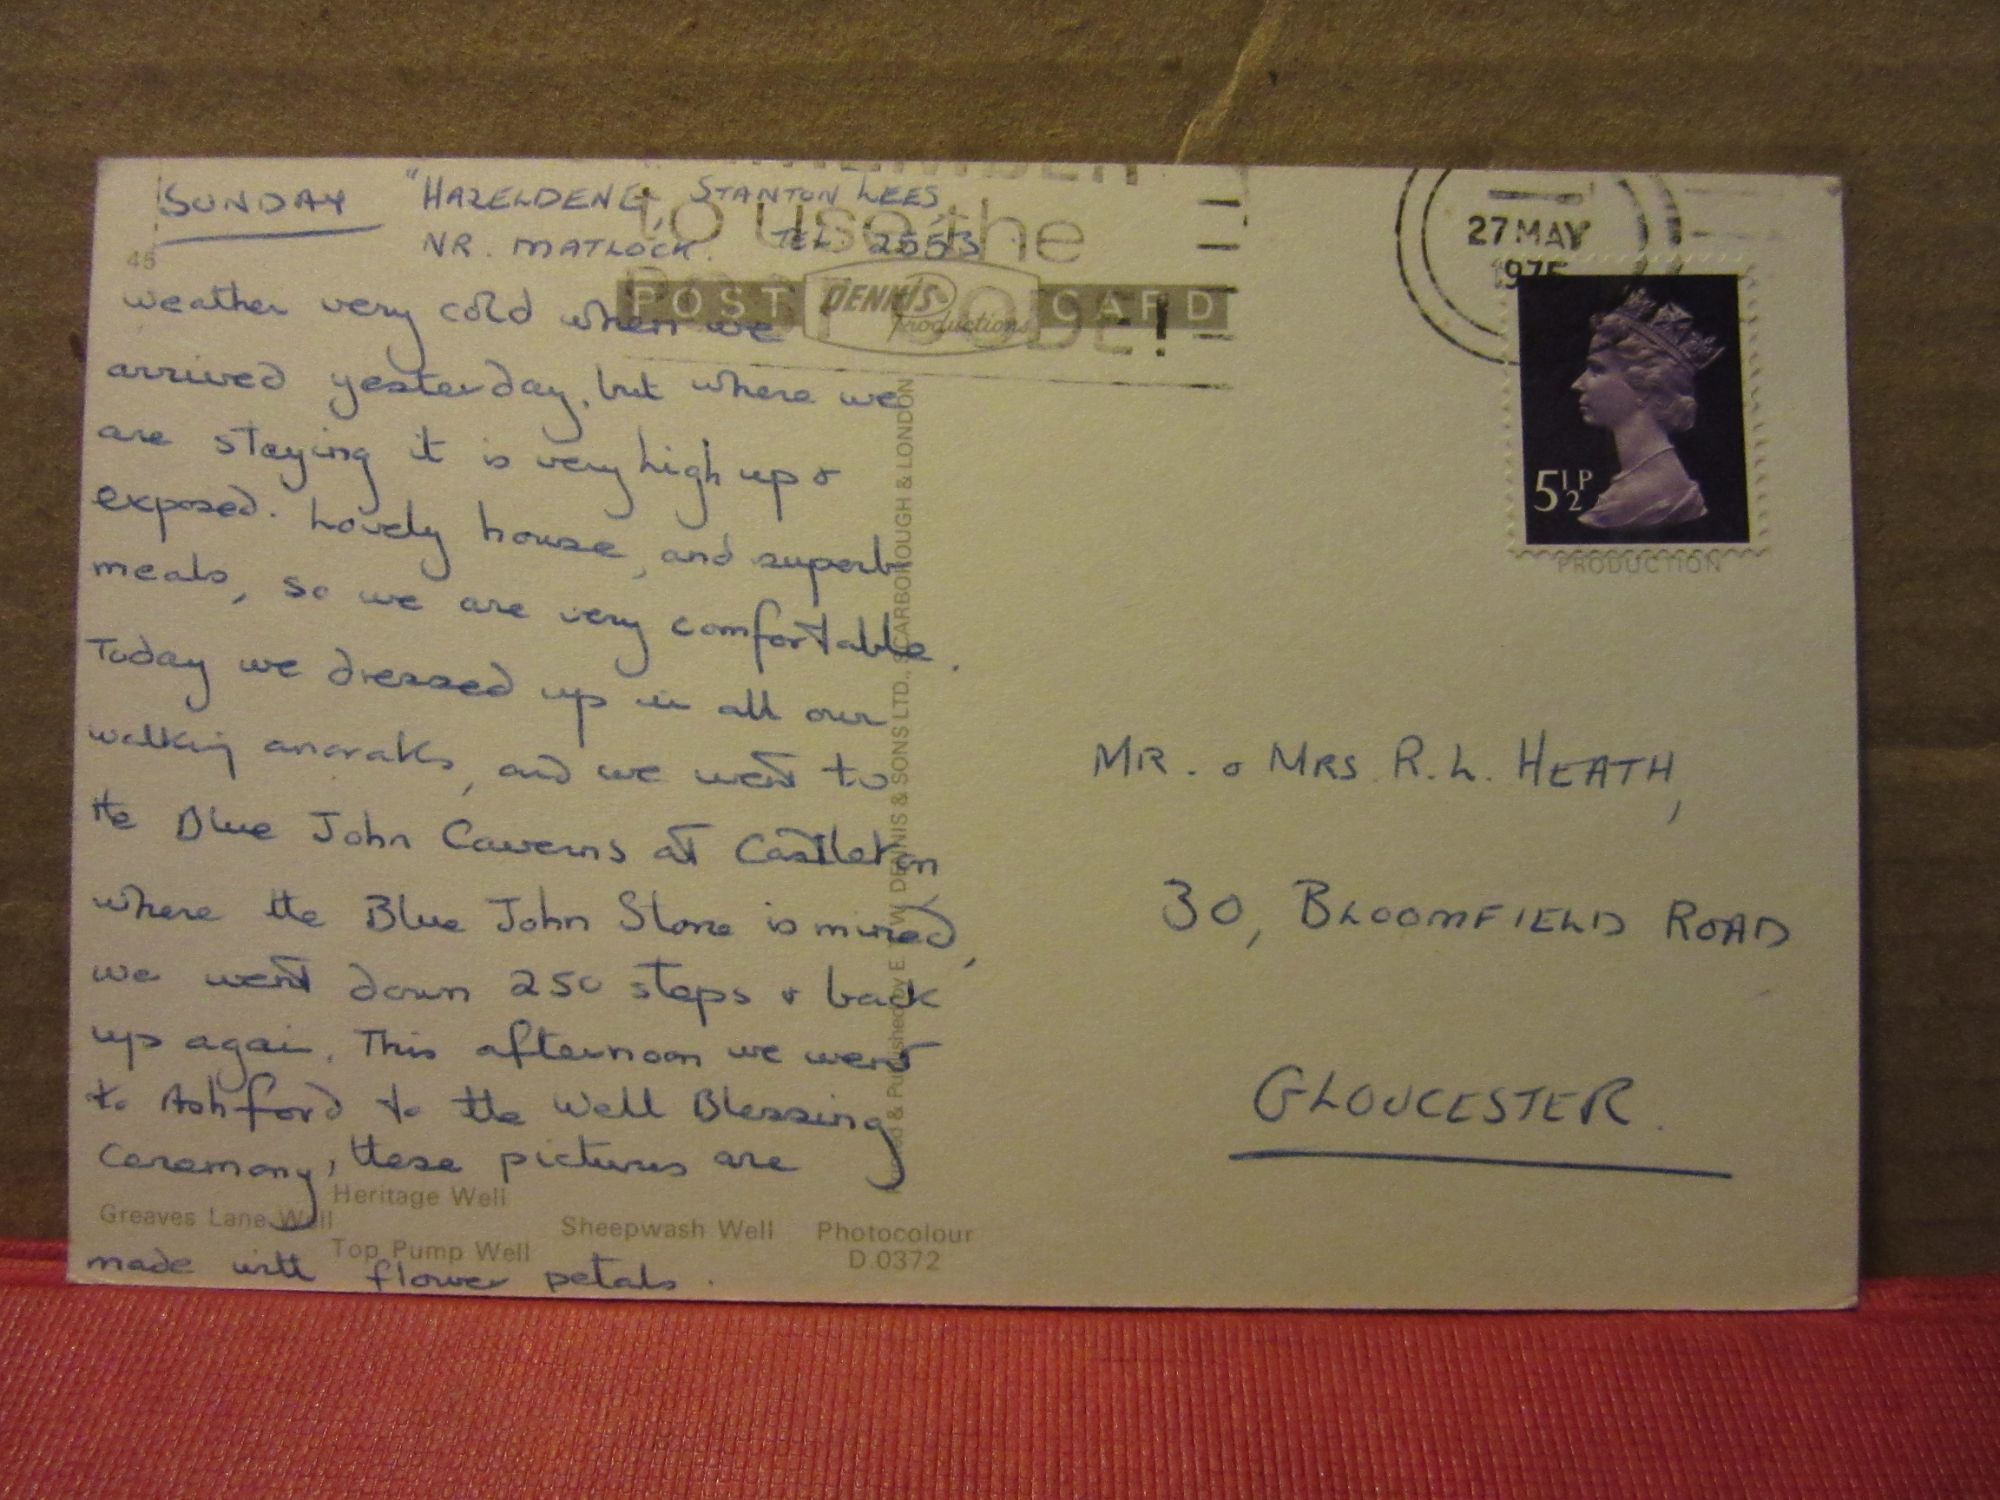 SUNDAY "HAZELDENE", STANTON LEES,
NR. MATLOCK. TEL. 2553
45
weather very cold when we
arrived yesterday, but where we
are staying it is very high up &
exposed. Lovely house, and superb
meals, so we are very comfortable.
Today we dressed up in all our
walking anoraks, and we went to
the Blue John Caverns at Castleton
where the Blue John Stone is mined,
we went down 250 steps & back
up again. This afternoon we went
to Ashford to the Well Blessing
Ceremony, these pictures are
made with flower petals.
Heritage Well
Greaves Lane Well
Sheepwash Well
Top Pump Well
Photocolour
D.0372
to use the
POST CODE!
POST CARD
DENNIS
Productions
& Published by E. T. W. DENNIS & SONS LTD., SCARBOROUGH & LONDON
27 MAY
1975
5½P
PRODUCTION
MR. & MRS. R. L. HEATH,
30, BLOOMFIELD ROAD
GLOUCESTER.